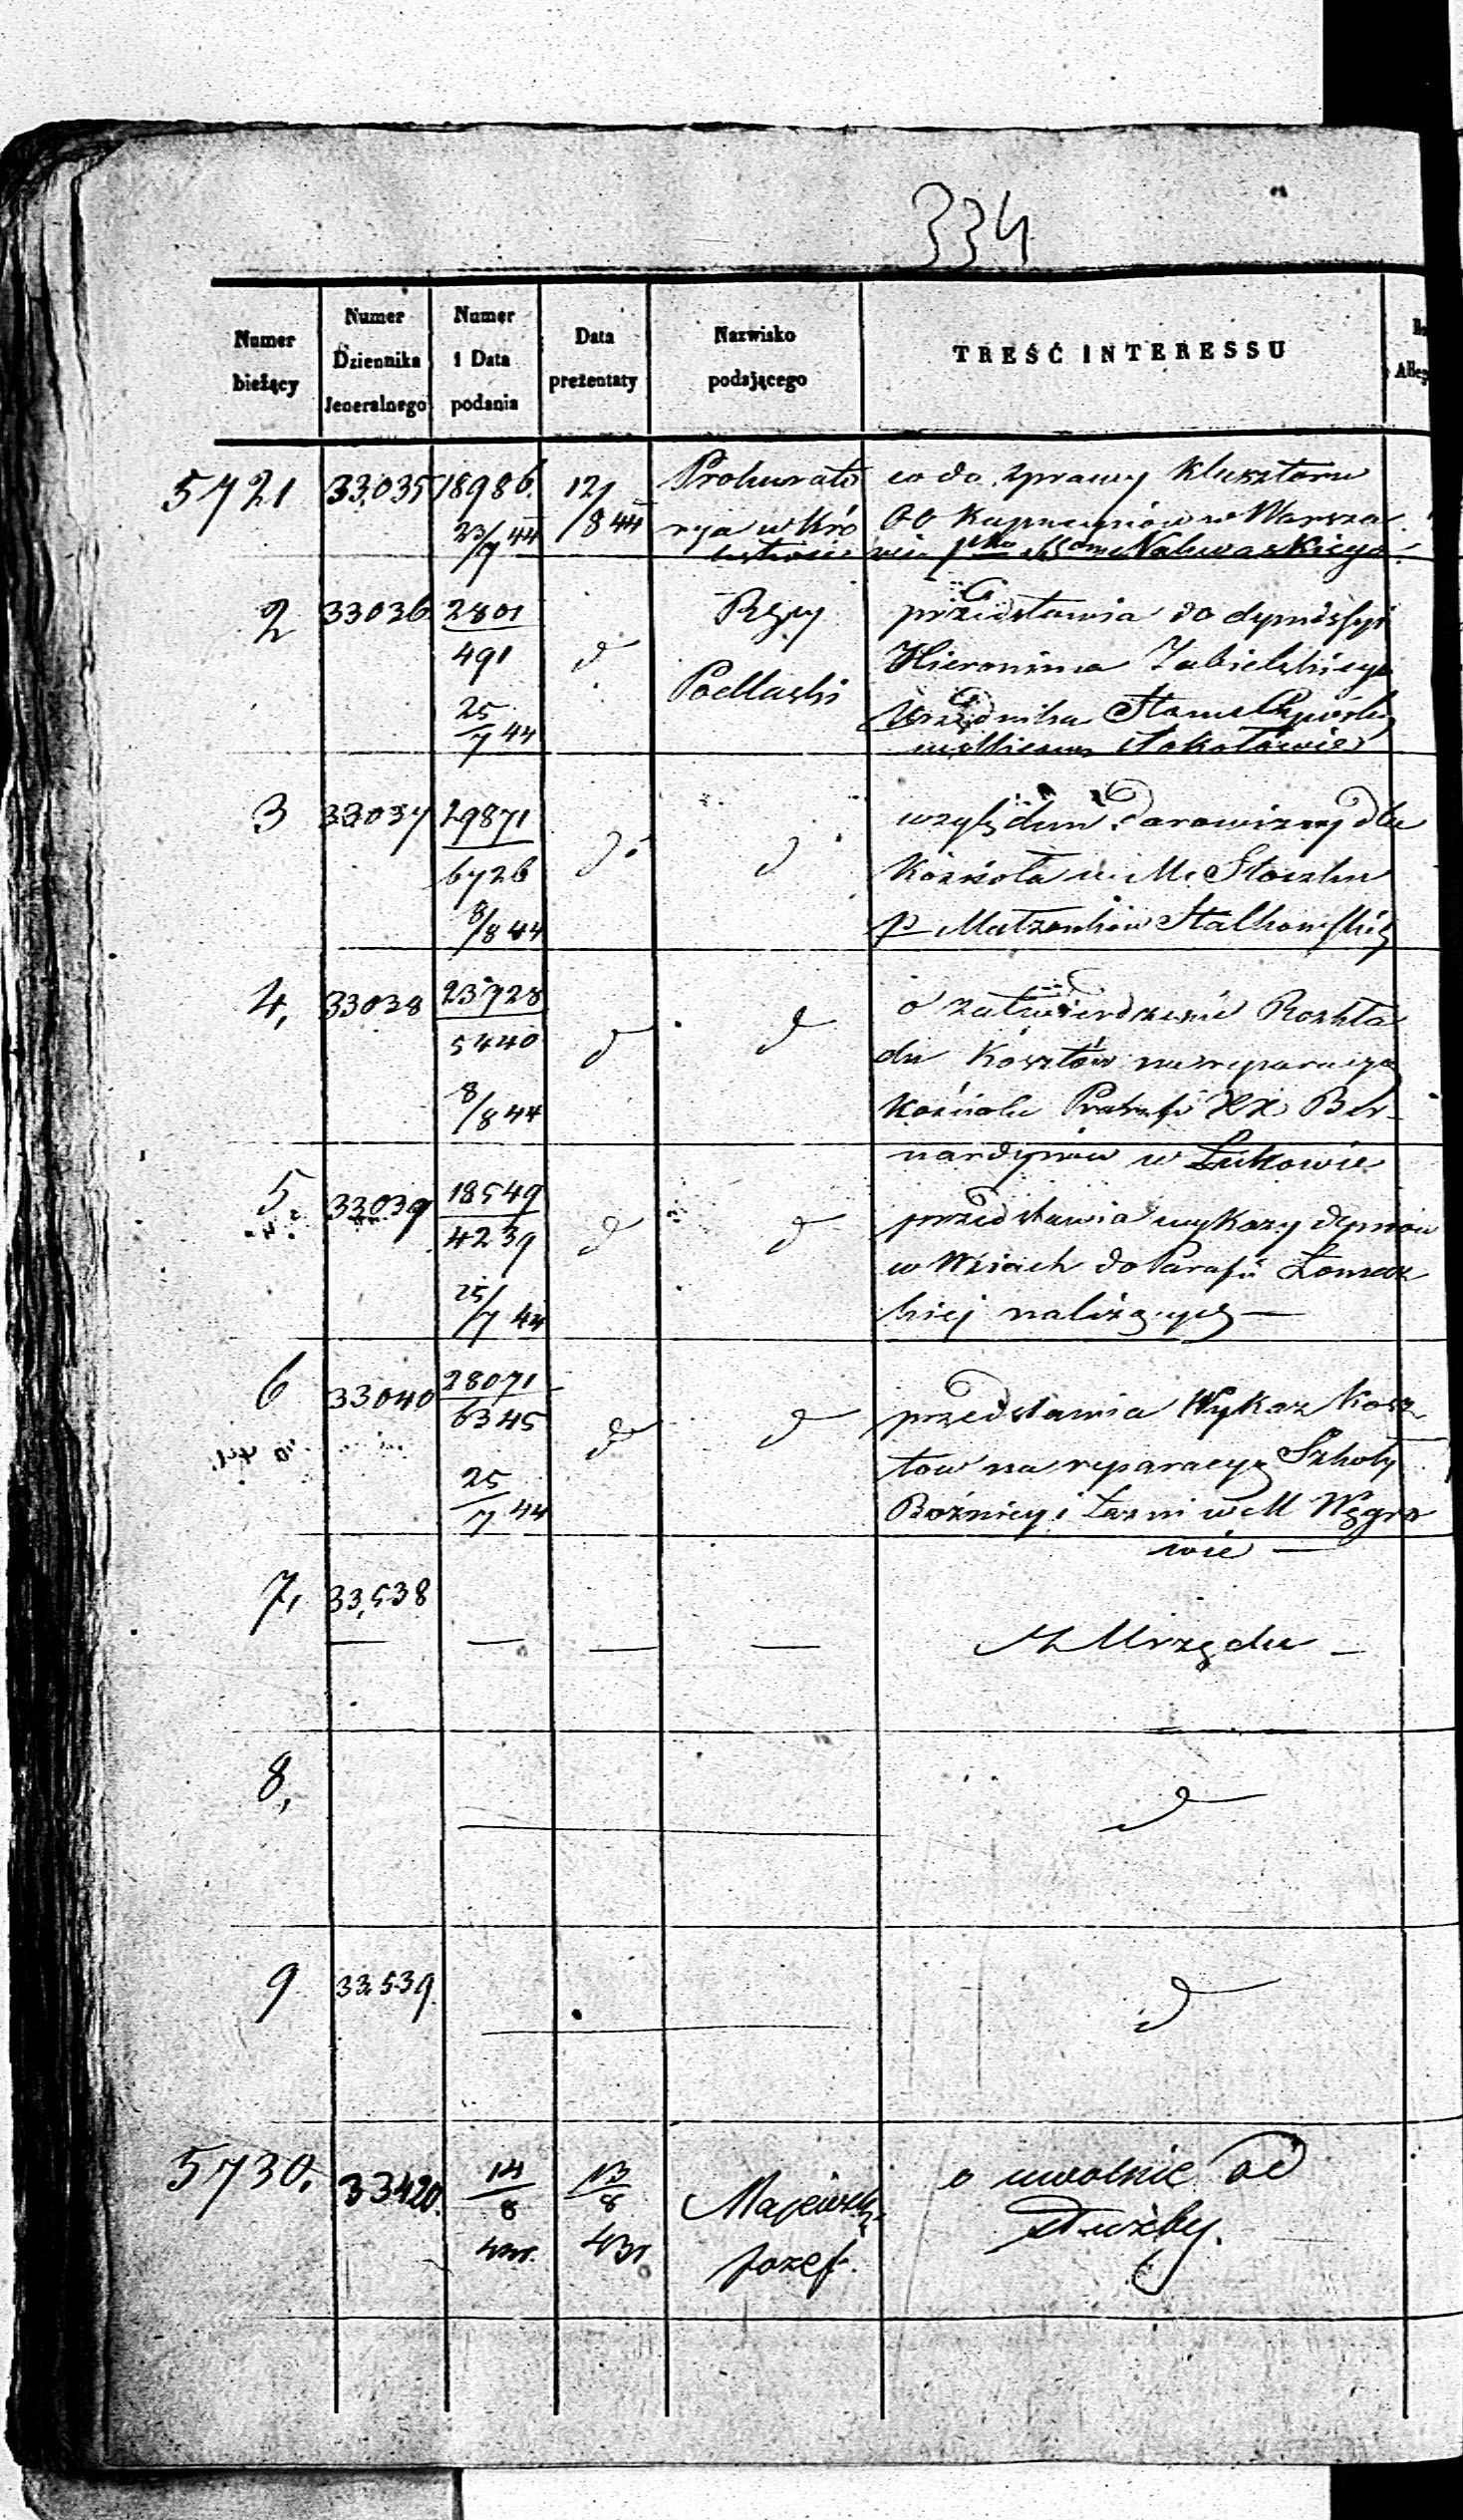 334
Numer bieżący
Numer Dziennika Jeneralnego
Numer i Data podania
Data prezentaty
Nazwisko podającego
TREŚĆ INTERESSU
5721 33,035 18986. 12/8 44 Prokurato co do sprawy Klasztoru
23/7 44 rya w Kró OO Kapucynów w Warsza
lestwie wie Nalewaskiego
2 33036 2801 d Rząd przedstawia do dymissyi
491 Podlaski Hieronima Zabielskiego
25/7 44 Urzędnika
w Sokołowie
3 33037 29871 d d względem Darowizny dla
6726 Kościoła w M. Stoczku
8/8 44 p Małżonków Stalkowskich
4, 33038 23728 d d o zatwierdzenie Rozkła
5440 du Kosztów na reparacyą
8/8 44 Kościoła Parafi XX Ber-
nardynów w Łukowie
5 33039 18549 d d przedstawia wykazy dymów
4239 w Wsiach do Parafii Łomaz
25/7 44 kiej należących —
6 33040 28071 d d przedstawia Wykaz Kosz
6345 tów na reparacyą Szkoły
25/7 44 Bożnicy i Łaźni w M Węgro
wie —
7, 33,538 — — — Z Urzędu —
8, d
9 33,539. d
5730. 33420. 14/8 13/8 Majewski o uwolnie od
44. Józef. służby.